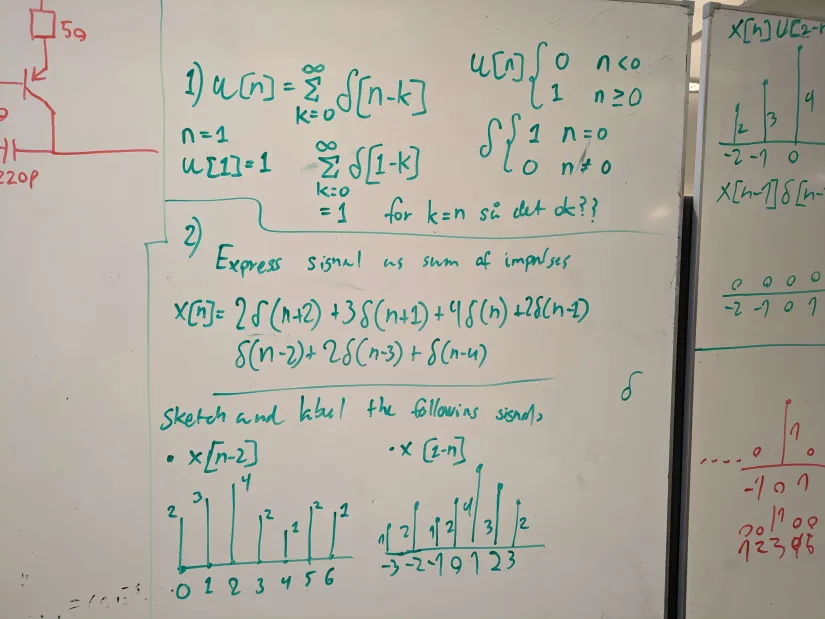 5Ω
220p
1) u[n] = ∞ Σ k=0 δ[n-k]
u[n] { 0 n<0
1 n≥0
n=1
u[1]=1 ∞ Σ k=0 δ[1-k]
δ { 1 n=0
0 n≠0
=1 for k=n så det ok??
2)
Express signal as sum of impulses
x[n]= 2δ(n+2)+3δ(n+1)+4δ(n)+2δ(n-1)
δ(n-2)+2δ(n-3)+δ(n-4)
δ
Sketch and label the following signals
• x[n-2] • x[1-n]
2 3 4 2 1 2 1
0 1 2 3 4 5 6
1 2 1 2 4 3 2
-3 -2 -1 0 1 2 3
x[n]u[2-n
2 3 4
-2 -1 0
x[n-1]δ[n-
0 0 0 0
-2 -1 0 1
.... 0 1 0
-1 0 1
0 0 1 0 0
1 2 3 4 5